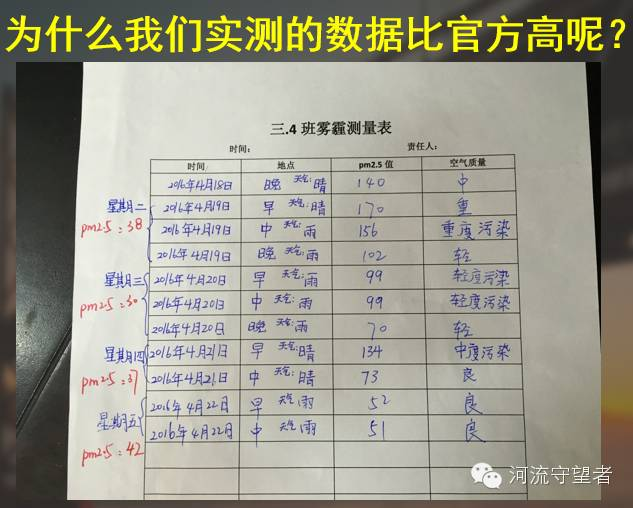 为什么我们实测的数据比官方高呢？
三.4 班雾霾测量表
时间： 责任人：
时间 地点 pm2.5 值 空气质量
2016年4月18日 晚 天气:晴 140 中
星期二 2016年4月19日 早 天气:晴 170 重
pm2.5:38 2016年4月19日 中 天气:雨 156 重度污染
2016年4月19日 晚 天气:雨 102 轻
星期三 2016年4月20日 早 天气:雨 99 轻度污染
pm2.5:30 2016年4月20日 中 天气:雨 99 轻度污染
2016年4月20日 晚 天气:雨 70 轻
星期四 2016年4月21日 早 天气:晴 134 中度污染
pm2.5:37 2016年4月21日 中 天气:晴 73 良
星期五 2016年4月22日 早 天气:雨 52 良
2016年4月22日 中 天气:雨 51 良
pm2.5:42
河流守望者